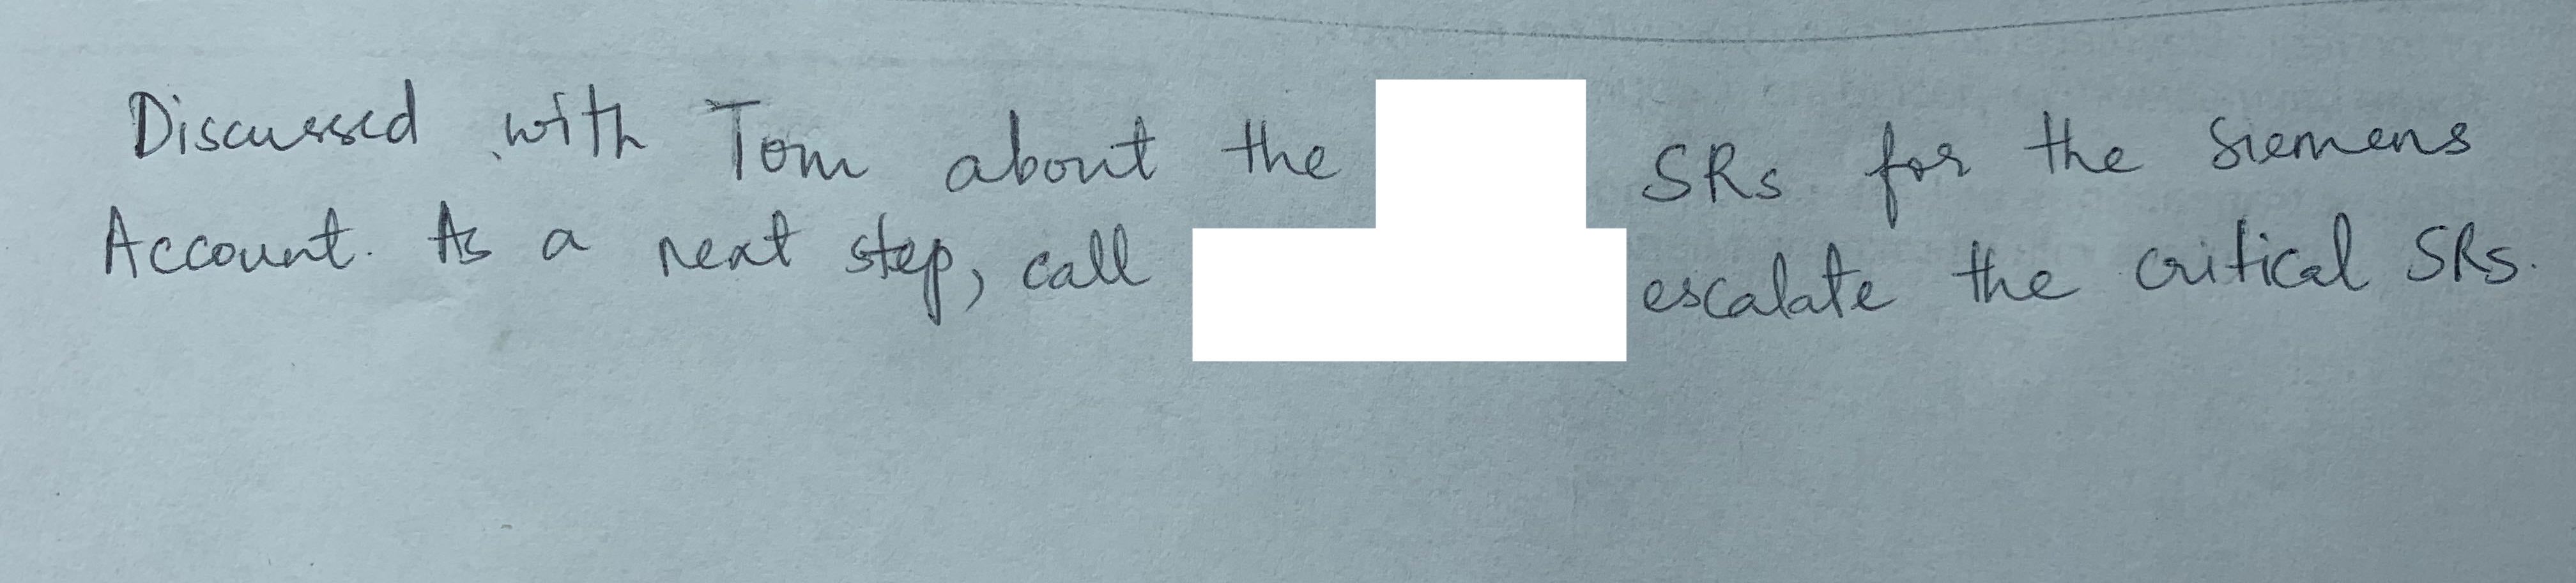 Discussed with Tom about the SRs for the Siemens
Account. As a next step, call escalate the critical SRs.